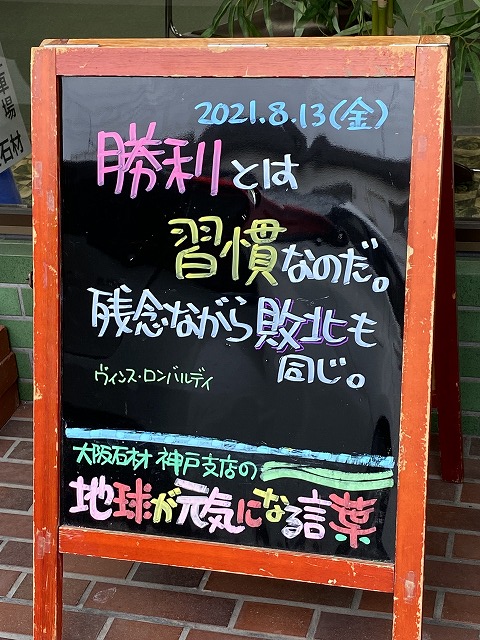 2021.8.13(金)
勝利とは
習慣なのだ。
残念ながら敗北も
同じ。
ヴィンス・ロンバルディ
大阪石材 神戸支店の
地球が元気になる言葉
場
石材